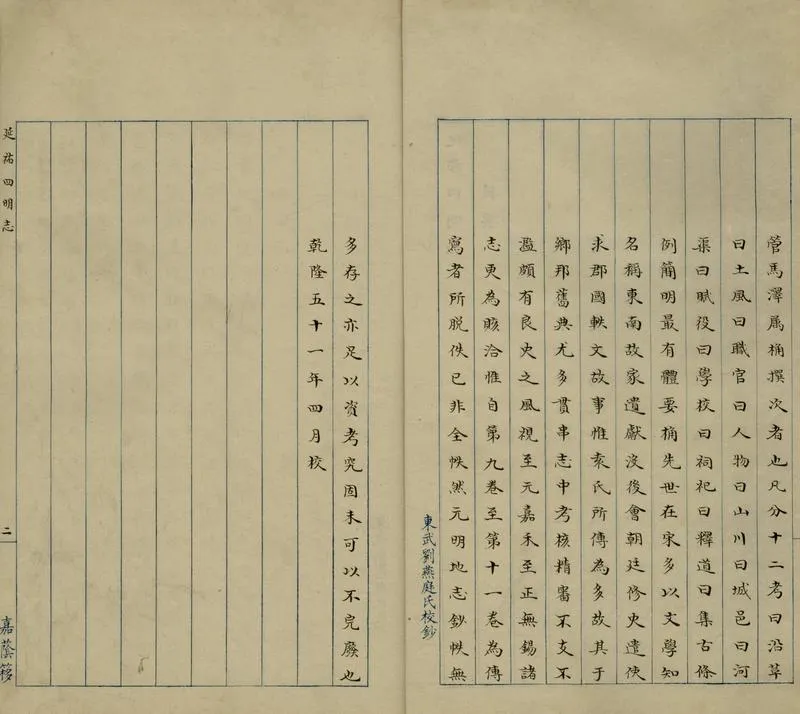 管馬澤屬桷撰次者也凡分十二考曰沿革
曰土風曰職官曰人物曰山川曰城邑曰河
渠曰賦役曰學校曰祠祀曰釋道曰集古條
例簡明最有體要桷先世在宋多以文學知
名稱東南故家遺獻没後會朝廷修史遣使
求郡國軼文故事惟袁氏所傳為多故其于
鄉邦舊典尤多貫串志中考核精審不支不
濫頗有良史之風視至元嘉禾至正無錫諸
志更為賅洽惟自第九卷至第十一卷為傳
寫者所脱佚已非全帙然元明地志鈔帙無
東武劉燕庭氏校鈔
多存之亦足以資考究固未可以不完廢也
乾隆五十一年四月校
延祐四明志
二
嘉蔭簃